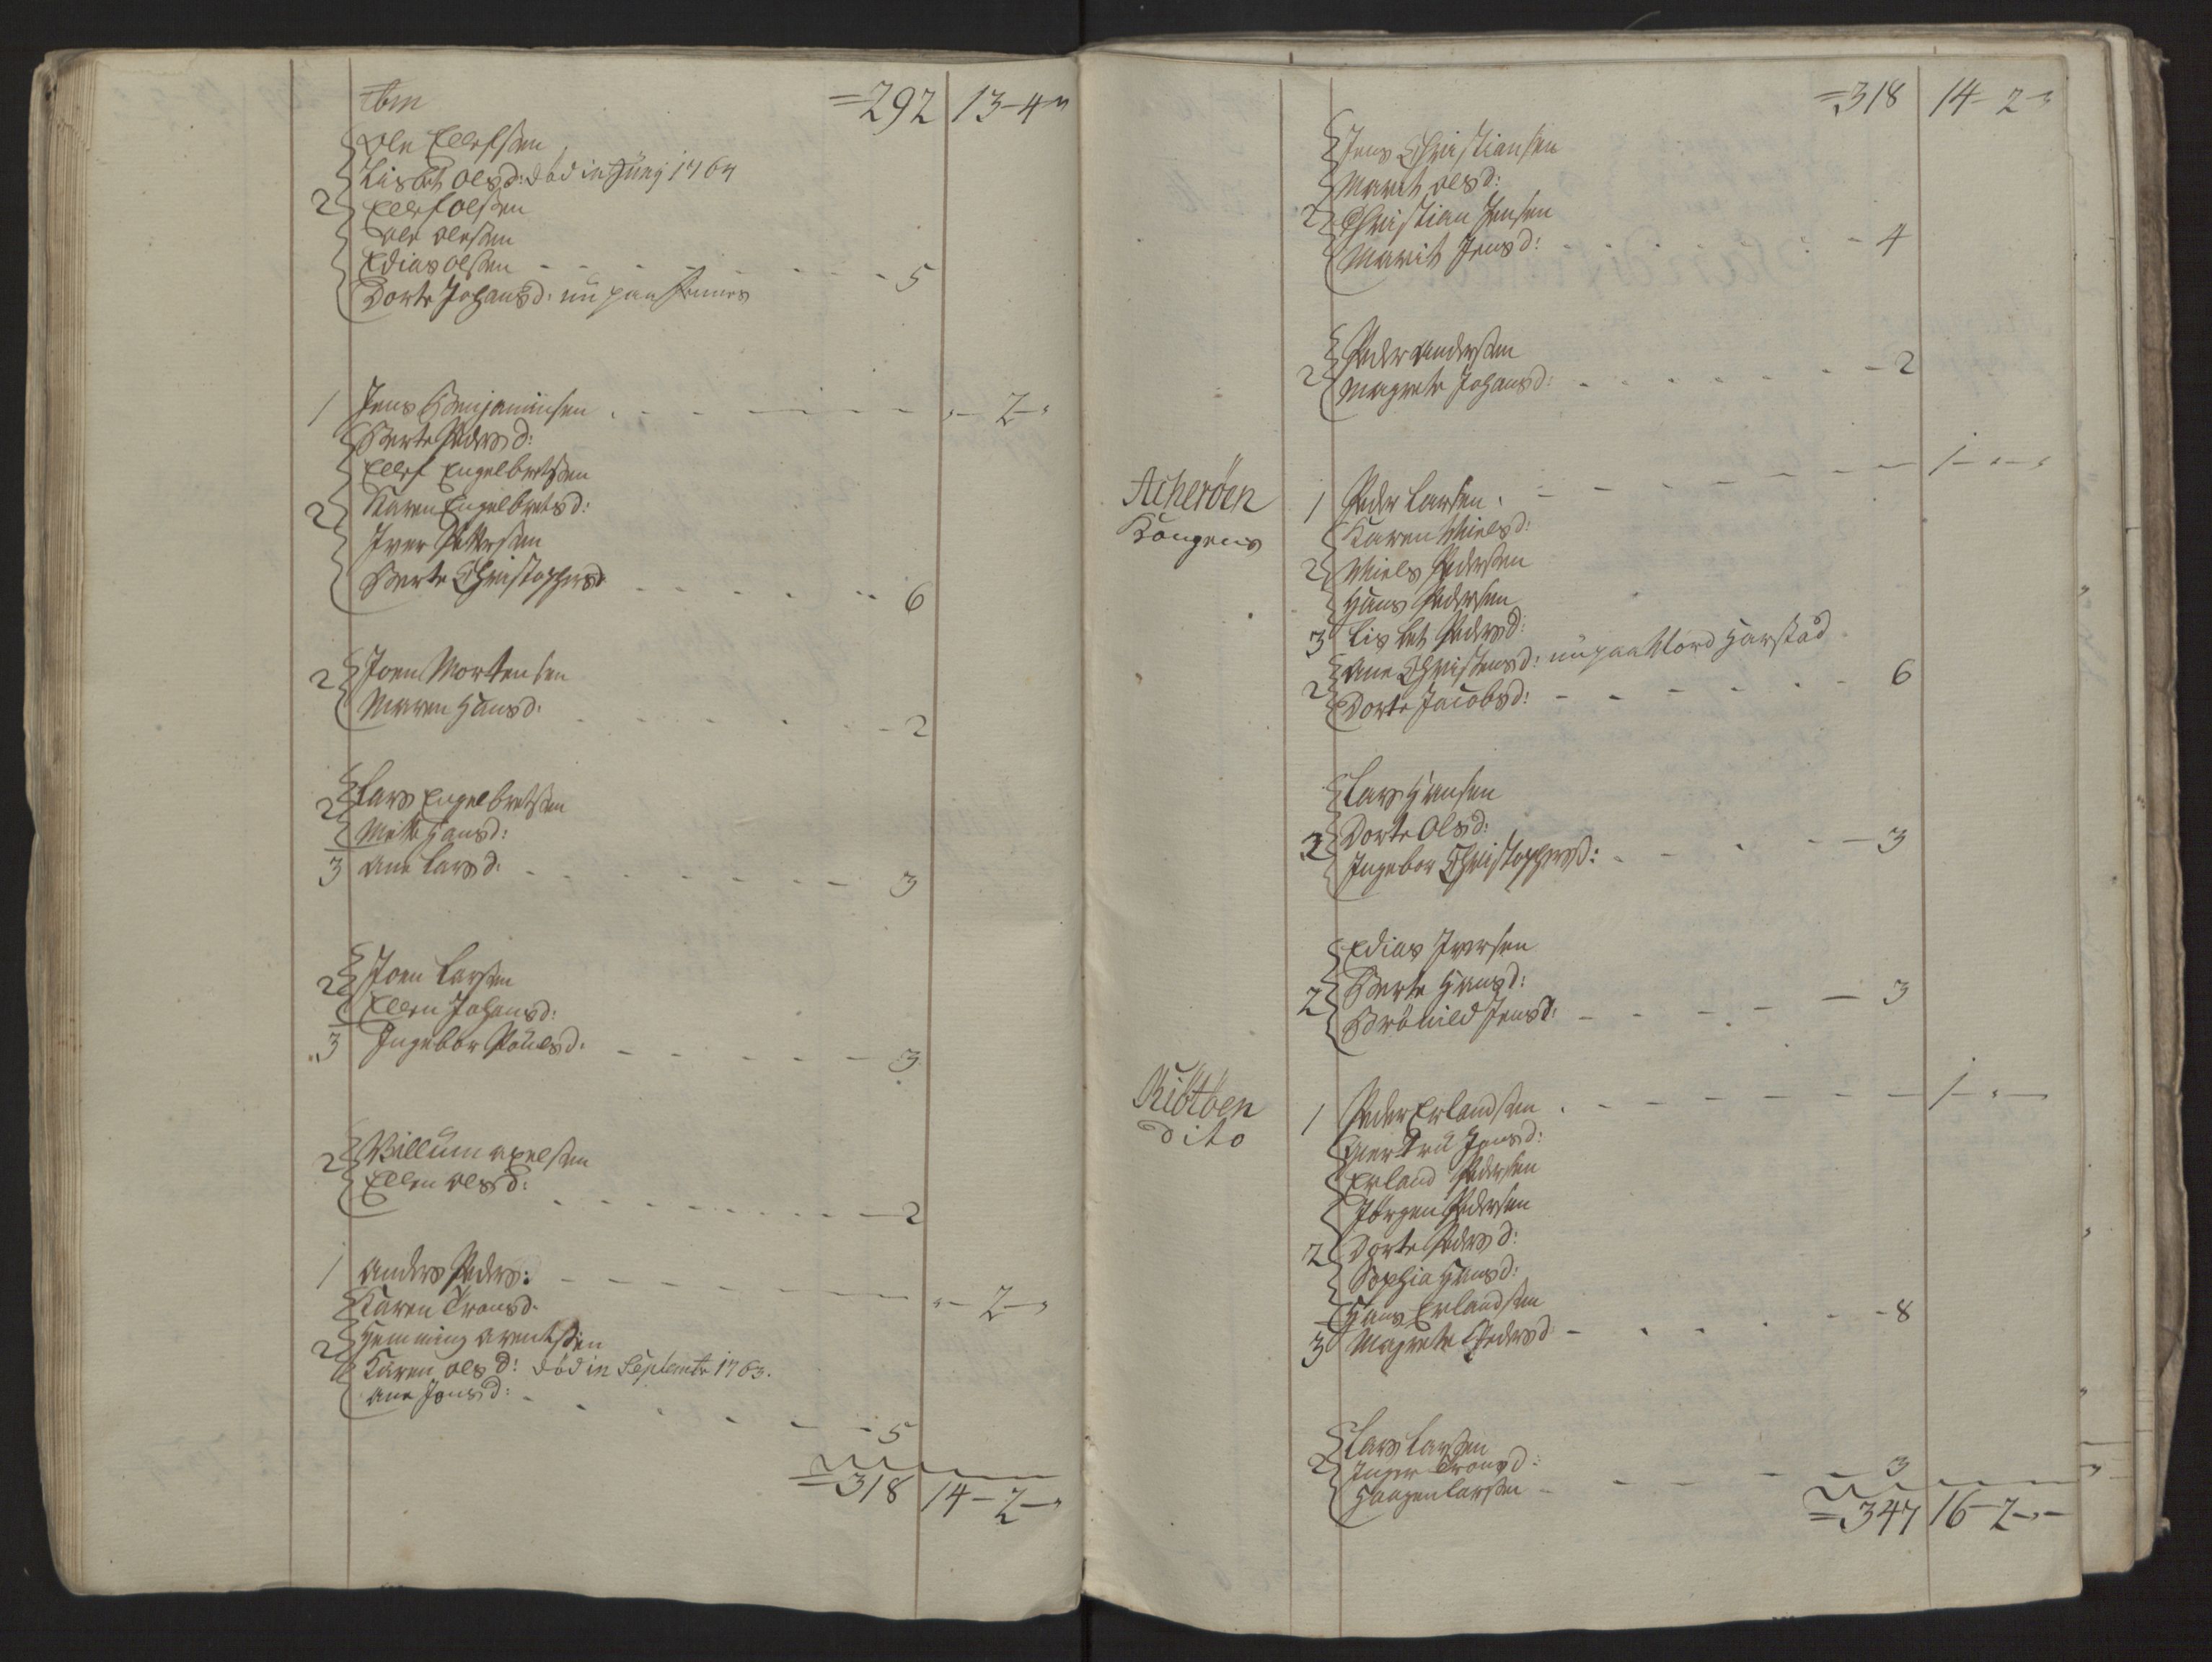 Ibm =292 13-4-"
Ole Ellefsen
Lisbet Olsd: död in Junj 1764
2 Ellef Olsen
Ole Olesen
Edias Olsen - - - - - - 5
Dorte Johansd: nü paa
1 Jens Benjaminsen - - - - - "-2-"
Berte Pedersd:
Ellef Engelbretsen
2 Karen Engelbretsd:
Iver Pettersen
Berte Christophersd - - - - - 6
2 Joen Mortensen
Maren Hansd: - - - - - 2
2 Lars Engelbretsen
Mette Hansd:
3 Ane Larsd: - - - - - 3
2 Joen Larsen
Ellen Johansd:
3 Ingebor Pouelsd: - - - - - 3
2 Villum Axelsen
Ellen Olsd: - - - - - 2
1 Anders Peders: - - - - - "-2-"
Karen Tronsd.
Hemming Arentsen
2 Karen Olsd: död in Septembr 1763.
Ane Jensd: - - - - - 5
=318 14-2-"
=318 14-2-"
Jens Christiansen
Marit Olsd:
2 Christian Jensen
Marit Jensd: - - - - - 4
Peder Andersen
2 Magrete Johansd: - - - - - 2
Acheröen 1 Peder Larsen. - - - - - 1-"-"
Kongens Karen Nielsd:
2 Niels Pedersen
Hans Pedersen
3 Lisbet Pedersd:
Ane Christensd: nü paa Nord Harstad
2 Dorte Jacobsd: - - - - - 6
Lars Hansen
2 Dorte Olsd:
Ingebor Christophersd: - - - - - 3
Edias Iversen
2 Berte Hansd:
Brönild Jensd: - - - - - 3
Kiötöen 1 Peder Erlandsen. - - - - - 1-"-
dito Giertru Jensd:
Erland Pedersen
Jörgen Pedersen
2 Dorte Pedersd:
Sophia Hansd:
Hans Erlandsen
3 Magrete Pedersd - - - - - 8
Lars Larsen
2 Inger Tronsd:
Haagen Larsen - - - - - 3
=347 16-2-"-